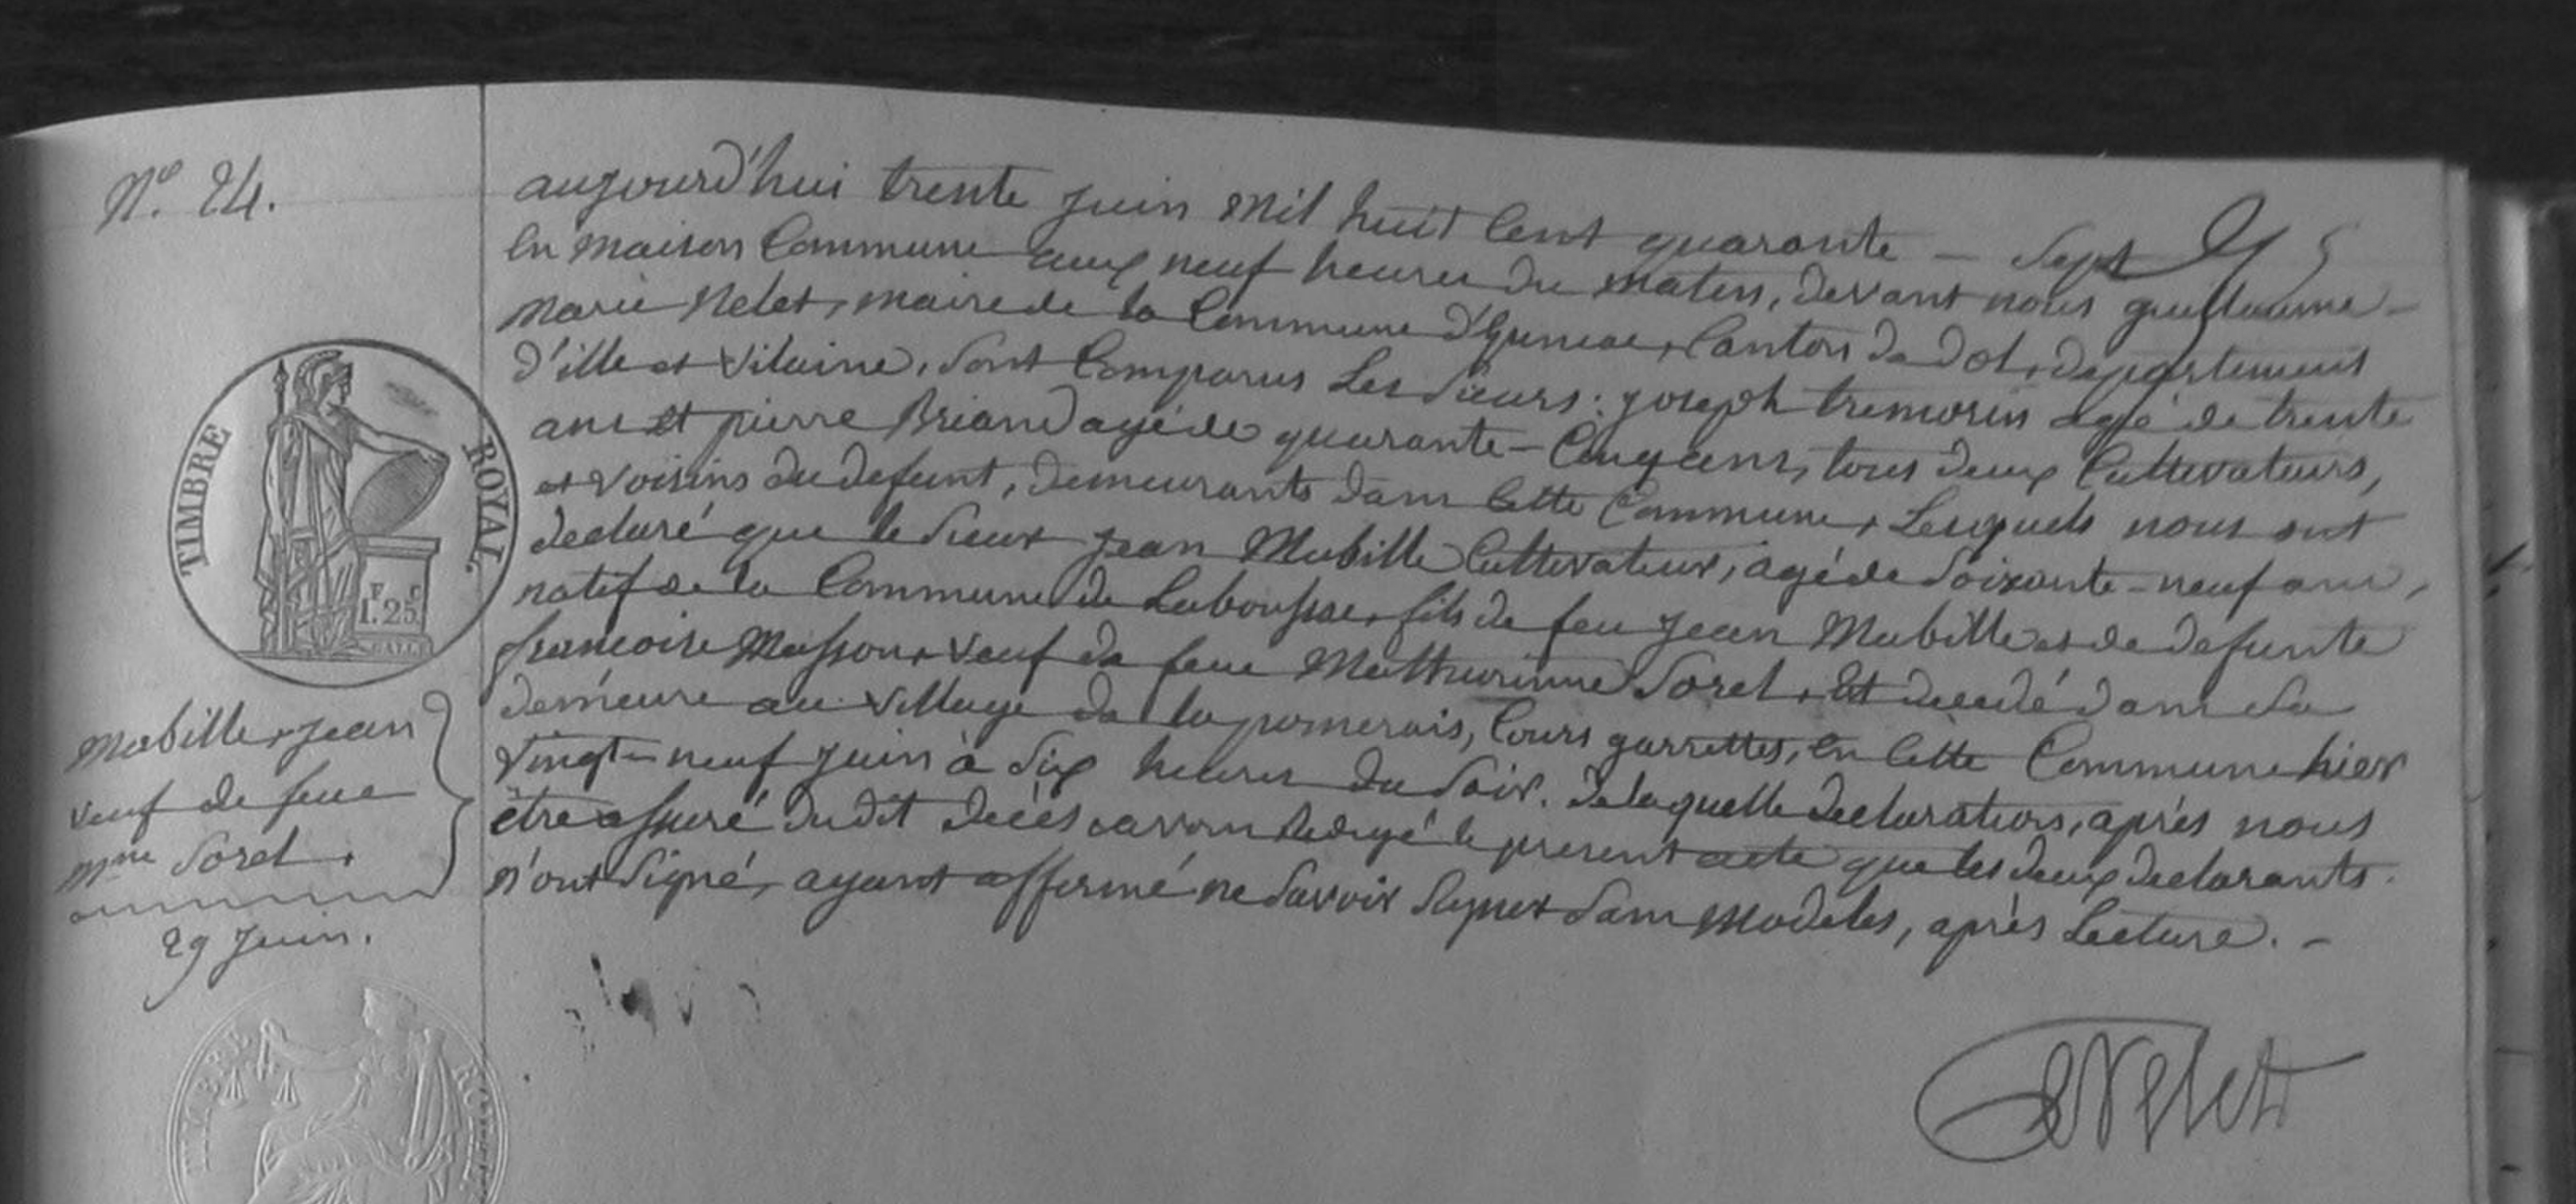 N.º 24.
aujourd'hui trente juin mil huit cent quarante - Sept
en maison Commune aux neuf heures du matin, devant nous guillaume-
marie Nelet, maire de la Commune d'Epiniac, Canton de dol, departement
d'ille et Vilaine, sont Comparus Les Sieurs : joseph tremorin agé de trente
ans et pierre Briand agé de quarante-Cinq ans, tous deux Cultivateurs,
et voisins du defunt, demeurants dans Cette Commune, Lesquels nous ont
declaré que le Sieur jean Mabille Cultivateur, agé de Soixante-neuf ans,
natif de la Commune de Labousssac, fils de feu jean Mabille et de defunte
francoise Masson, veuf de feue Mathurinne Sorel, Est decedé dans sa
demeure au village de la pomerais, Cours garrettes, en Cette Commune hier
vingt-neuf juin à Six heures du Soir. de laquelle declaration, après nous
être assuré du dit decès avons Redigé le present acte que les deux declarants
n'ont Signé, ayant affermé ne Savoir Signer Sans modeles, après Lecture. -
TIMBRE ROYAL
1 F. 25 C
Mabille, jean
veuf de feue
Mme Sorel.
29 juin.
Nelet